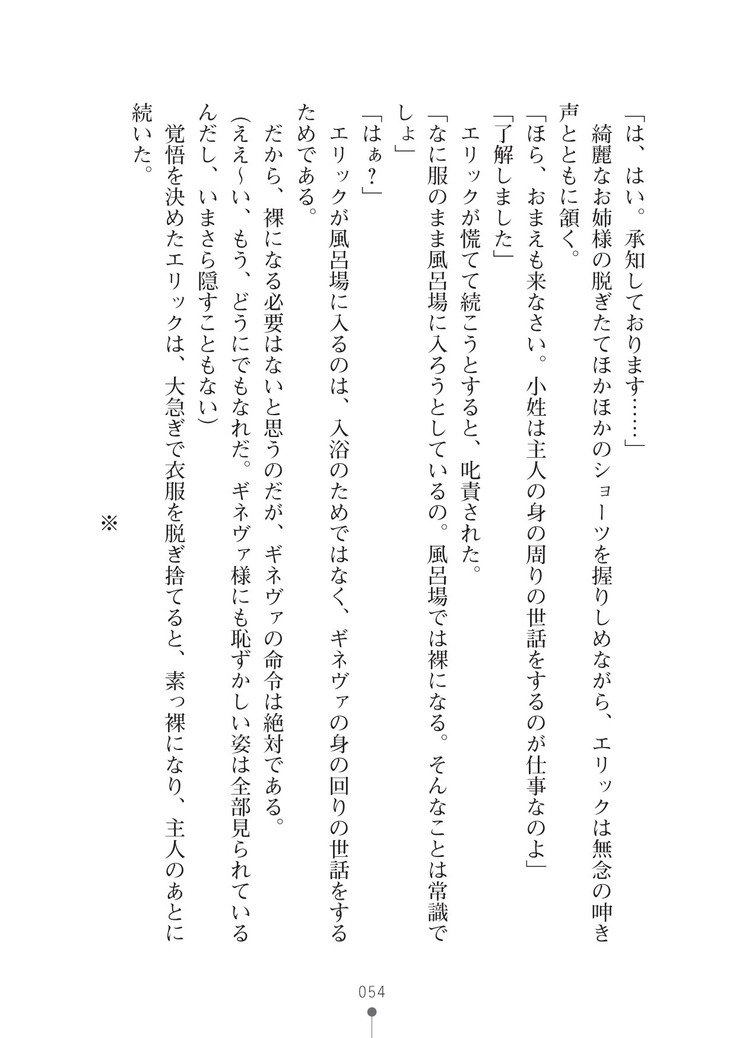 「は、はい。承知しております……」
　綺麗なお姉様の脱ぎたてほかほかのショーツを握りしめながら、エリックは無念の呻き
声とともに頷く。
「ほら、おまえも来なさい。小姓は主人の身の周りの世話をするのが仕事なのよ」
「了解しました」
　エリックが慌てて続こうとすると、叱責された。
「なに服のまま風呂場に入ろうとしているの。風呂場では裸になる。そんなことは常識で
しょ」
「はぁ？」
　エリックが風呂場に入るのは、入浴のためではなく、ギネヴァの身の回りの世話をする
ためである。
　だから、裸になる必要はないと思うのだが、ギネヴァの命令は絶対である。
（ええ～い、もう、どうにでもなれだ。ギネヴァ様にも恥ずかしい姿は全部見られている
んだし、いまさら隠すこともない）
　覚悟を決めたエリックは、大急ぎで衣服を脱ぎ捨てると、素っ裸になり、主人のあとに
続いた。
※
054